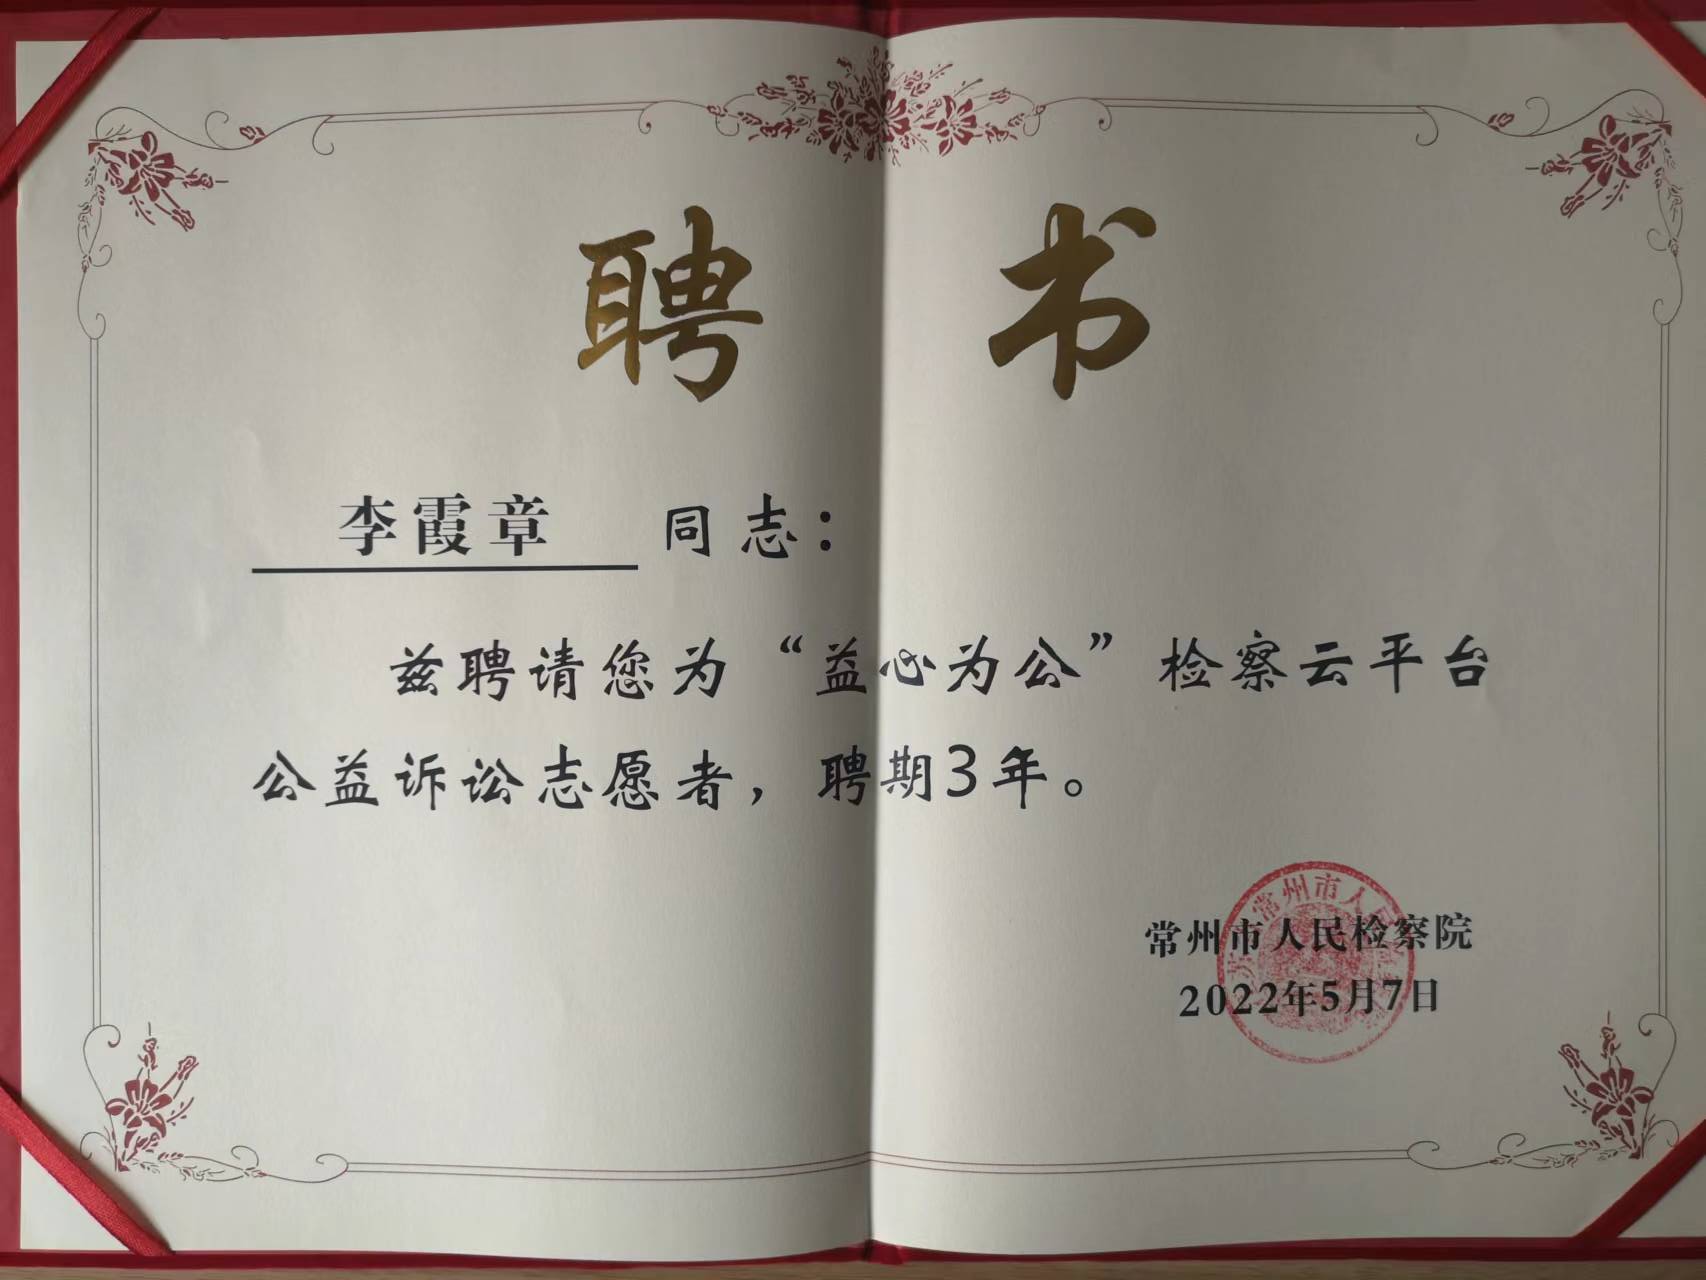 聘书
李霞章 同志：
兹聘请您为“益心为公”检察云平台
公益诉讼志愿者，聘期3年。
常州市人民检察院
2022年5月7日
常州市人民